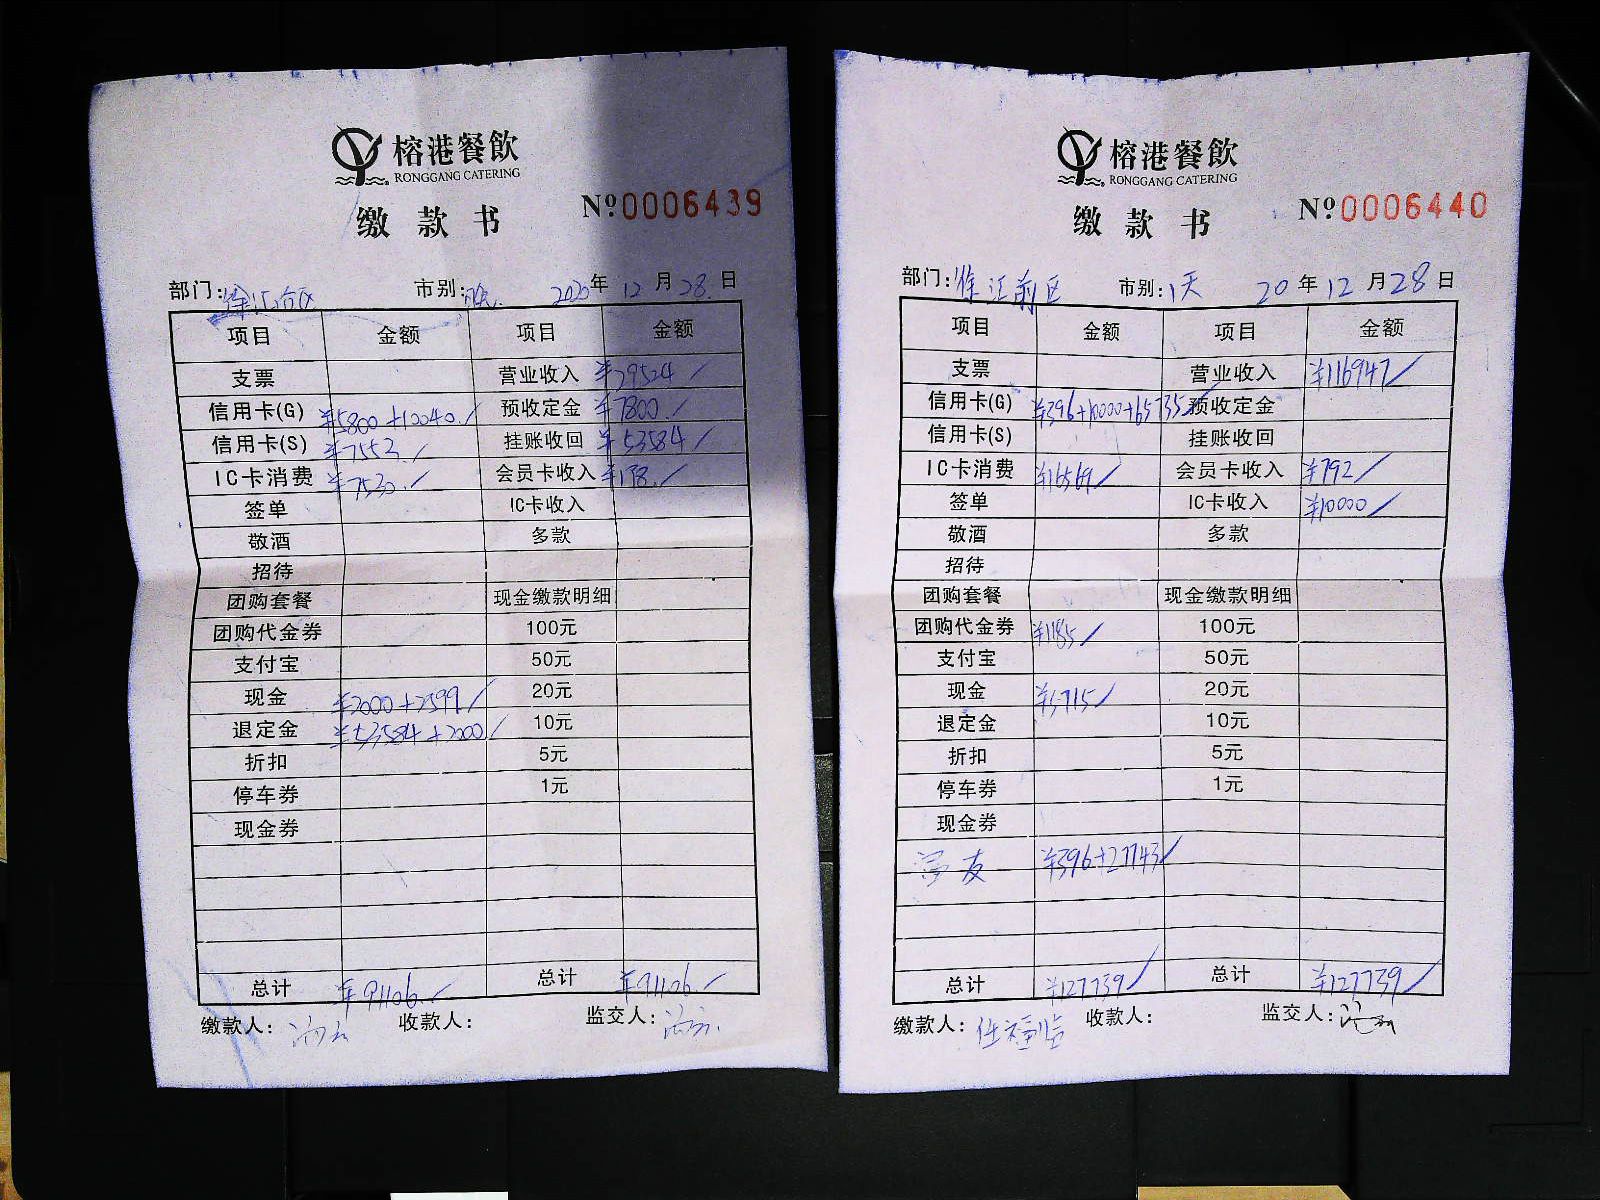 榕港餐飲
RONGGANG CATERING
缴款书 Nº0006439
部门: 市别: 2020年12月28日
项目 金额 项目 金额
支票 营业收入 ¥29524
信用卡(G) ¥5800+10040. 预收定金 ¥7800.
信用卡(S) ¥7553. 挂账收回 ¥53584
IC卡消费 ¥7530. 会员卡收入 ¥198.
签单 IC卡收入
敬酒 多款
招待
团购套餐 现金缴款明细
团购代金券 100元
支付宝 50元
现金 ¥2000+2599 20元
退定金 ¥53584+2000 10元
折扣 5元
停车券 1元
现金券
总计 ¥91106. 总计 ¥91106.
缴款人: 收款人: 监交人:
榕港餐飲
RONGGANG CATERING
缴款书 Nº0006440
部门:徐汇前区 市别:1天 20年12月28日
项目 金额 项目 金额
支票 营业收入 ¥116947
信用卡(G) ¥396+10000+65735 预收定金
信用卡(S) 挂账收回
IC卡消费 ¥16569 会员卡收入 ¥792
签单 IC卡收入 ¥10000
敬酒 多款
招待
团购套餐 现金缴款明细
团购代金券 ¥1185 100元
支付宝 50元
现金 ¥5715 20元
退定金 10元
折扣 5元
停车券 1元
现金券
¥396+27743
总计 ¥127739 总计 ¥127739
缴款人: 收款人: 监交人: